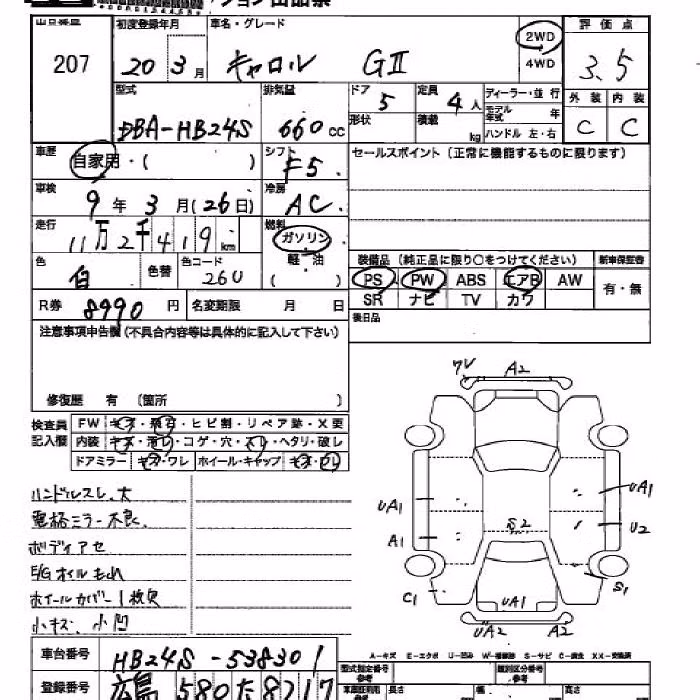 ション出品票
出品番号 初度登録年月 車名・グレード 2WD 評価点
207 20 3月 キャロル GⅡ 4WD 3.5
型式 排気量 ドア 5 定員 4人 ディーラー・並行 外装 内装
DBA-HB24S 660cc 形状 積載 kg モデル年式 年 C C
ハンドル 左・右
車歴 自家用・( ) シフト F5 セールスポイント(正常に機能するものに限ります)
車検 9年 3月(26日) 冷房 AC
走行 11万2千419km 燃料 ガソリン
軽・油
色 白 色替 色コード 26U ( ) 装備品(純正品に限り○をつけてください) 新車保証書
PS PW ABS エアB AW 有・無
SR ナビ TV カワ
R券 8990円 名変期限 月 日 後日品
注意事項申告欄(不具合内容等は具体的に記入して下さい)
修復歴 有 (箇所 )
検査員記入欄 FW キズ・飛石・ヒビ割・リペア跡・X要
内装 キズ・汚レ・コゲ・穴・スレ・ヘタリ・破レ
ドアミラー キズ・ワレ ホイール・キャップ キズ・ワレ
ハンドルスレ、大
電格ミラー不良、
ボディアセ
E/Gオイルもれ
ホイールカバー1枚欠
小キズ、小凹
ワレ A2
UA1 UA1
A1 S2 U2
C1 UA1 S1
UA2 A2
A-キズ E-エクボ U-凹み W-補修跡 S-サビ C-腐蝕 XX-交換済
車台番号 HB24S-538301
型式指定番号 類別区分番号
登録番号 広島 580 た 8217
長さ 幅 高さ